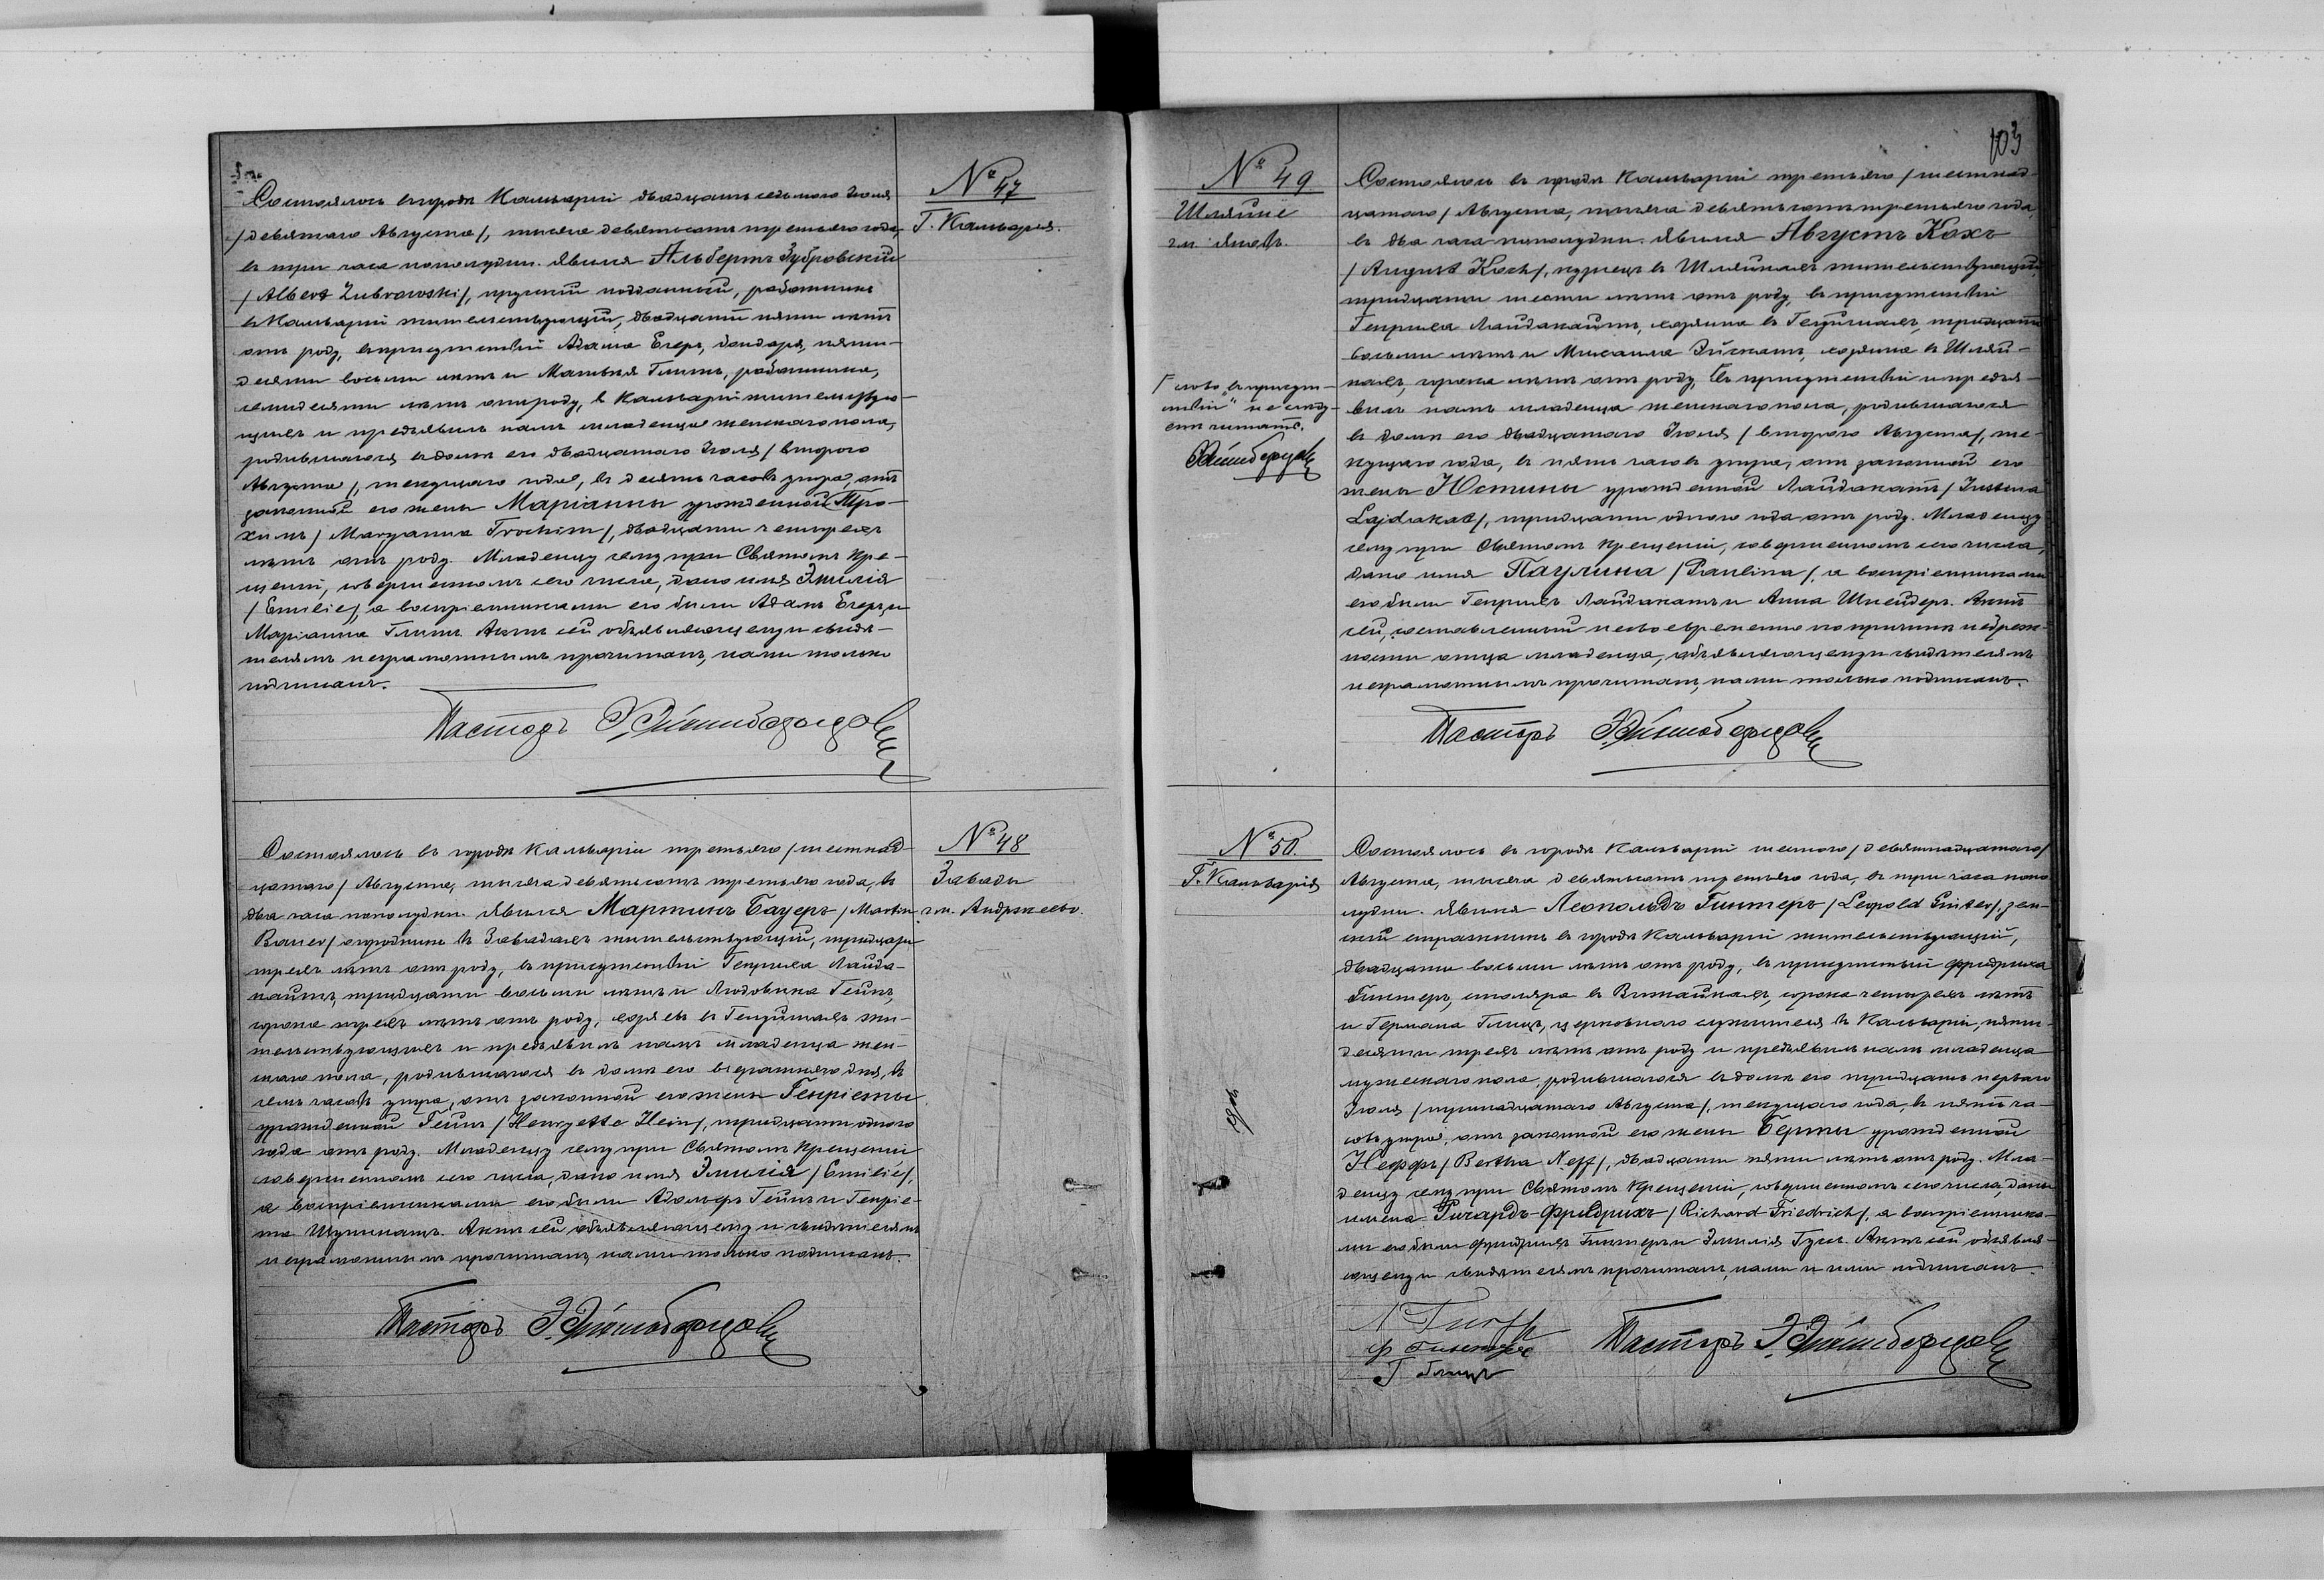 № 47
Г. Кальварія.
Состоялось въ городѣ Кальваріи двадцать седьмого Іюля
/девятаго Августа/, тысяча девятьсотъ третьяго года,
въ три часа пополудни. Явился Альбертъ Зубровскій
/Albert Zubrowski/, прускій подданный, работникъ
въ Кальваріи жительствующій, двадцати пяти лѣтъ
отъ роду, въ присутствіи Адама Егеръ, бондаря, пяти-
десяти восьми лѣтъ и Матвѣя Глинъ, работника,
семидесяти лѣтъ отъ роду, въ Кальваріи жительствую-
щихъ и предъявилъ намъ младенца женскаго пола,
родившагося въ домѣ его двадцатаго Іюля /второго
Августа/, текущаго года, въ десять часовъ утра, отъ
законной его жены Маріанны урожденной Тро-
химъ /Maryanna Trochim/, двадцати четырехъ
лѣтъ отъ роду. Младенцу сему при Святомъ Кре-
щеніи, совершенномъ сего числа, дано имя Эмилія
/Emilie/, а воспріемниками его были Адамъ Егеръ и
Маріанна Глинъ. Актъ сей объявляющему и свидѣ-
телямъ неграмотнымъ прочитанъ, нами только
подписанъ.
Пасторъ
№ 48
Завады
гм. Андржеево.
Состоялось въ городѣ Кальваріи третьяго /шестнад-
цатаго/ Августа, тысяча девятьсотъ третьяго года, въ
два часа пополудни. Явился Мартинъ Бауеръ /Martin
Bauer/ огородникъ въ Завадахъ жительствующій, тридцати
трехъ лѣтъ отъ роду, въ присутствіи Генриха Лайда-
кайтъ, тридцати восьми лѣтъ и Людовика Гейнъ,
сорока трехъ лѣтъ отъ роду, хозяевъ въ жи-
тельствующихъ и предъявилъ намъ младенца жен-
скаго пола, родившагося въ домѣ его вчерашняго дня, въ
семь часовъ утра, отъ законной его жены Генріетты
урожденной Гейнъ /Henryette Hein/, тридцати одного
года отъ роду. Младенцу сему при Святомъ Крещеніи
совершенномъ сего числа, дано имя Эмилія /Emilie/,
а воспріемниками его были Адольфъ Гейнъ и Генріе-
та Актъ сей объявляющему и свидѣтелямъ
неграмотнымъ прочитанъ, нами только подписанъ.
Пасторъ
103
№ 49
гм. Яновъ.
Слово „въ присут-
ствіи" не слѣду-
етъ читать.
Состоялось въ городѣ Кальваріи третьяго /шестнад-
цатаго/ Августа, тысяча девятьсотъ третьяго года,
въ два часа пополудни. Явился Августъ Кохъ
/August Koch/, кузнецъ въ жительствующій,
тридцати шести лѣтъ отъ роду, въ присутствіи
Генриха Лайдакайтъ, хозяина въ тридцати
восьми лѣтъ и Михаила хозяина въ Шляй-
нахъ, сорока лѣтъ отъ роду, въ присутствіи и предъя-
вилъ намъ младенца женскаго пола, родившагося
въ домѣ его двадцатаго Іюля /второго Августа/, те-
кущаго года, въ пять часовъ утра, отъ законной его
жены Юстины урожденной Лайдакатъ /Justina
Lajdakat/, тридцати одного года отъ роду. Младенцу
сему при Святомъ Крещеніи, совершенномъ сего числа,
дано имя Паулина /Paulina/, а воспріемниками
его были Генрихъ Лайдакатъ и Анна Шнейдеръ. Актъ
сей, составленный несвоевременно по причинѣ небреж-
ности отца младенца, объявляющему и свидѣтелямъ
неграмотнымъ прочитанъ, нами только подписанъ.
Пасторъ
№ 50.
Г. Кальварія
Состоялось въ городѣ Кальваріи шестого /девятнадцатаго/
Августа, тысяча девятьсотъ третьяго года, въ три часа попо-
лудни. Явился Леопольдъ Гинтеръ /Leopold Ginter/, зем-
скій стражникъ въ городѣ Кальваріи жительствующій,
двадцати восьми лѣтъ отъ роду, въ присутствіи Фридриха
Гинтеръ, столяра въ сорока четырехъ лѣтъ
и Германа Глицъ, церковнаго служителя въ Кальваріи, пяти-
десяти трехъ лѣтъ отъ роду и предъявилъ намъ младенца
мужескаго пола, родившагося въ домѣ его тридцать перваго
Іюля /тринадцатаго Августа/, текущаго года, въ пять ча-
совъ утра, отъ законной его жены Берты урожденной
Неффъ /Bertha Neff/, двадцати пяти лѣтъ отъ роду. Мла-
денцу сему при Святомъ Крещеніи, совершенномъ сего числа, даны
имена Ричардъ-Фридрихъ /Richard Friedrich/, а воспріемника-
ми его были Фридрихъ Гинтеръ и Эмилія Гузъ. Актъ сей объявля-
ющему и свидѣтелямъ прочитанъ, нами и ими подписанъ.
Ф Гинтеръ
Г Глицъ
Пасторъ